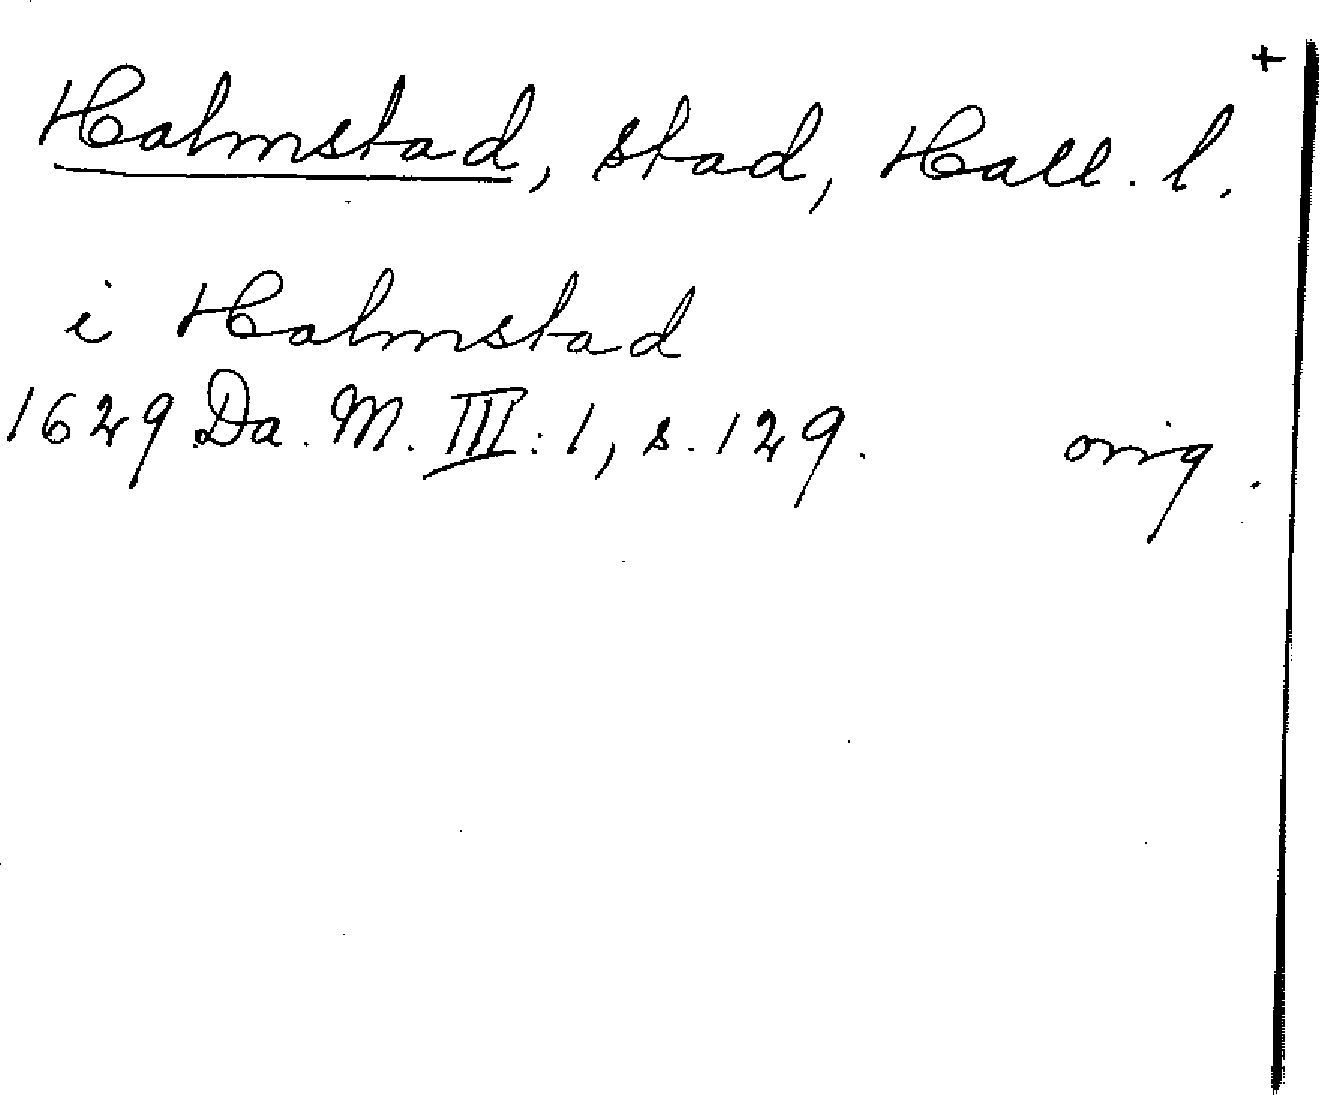 +
Halmstad, stad, Hall. l.
i Halmstad
1629 Da. M. III: 1, s. 129. orig.